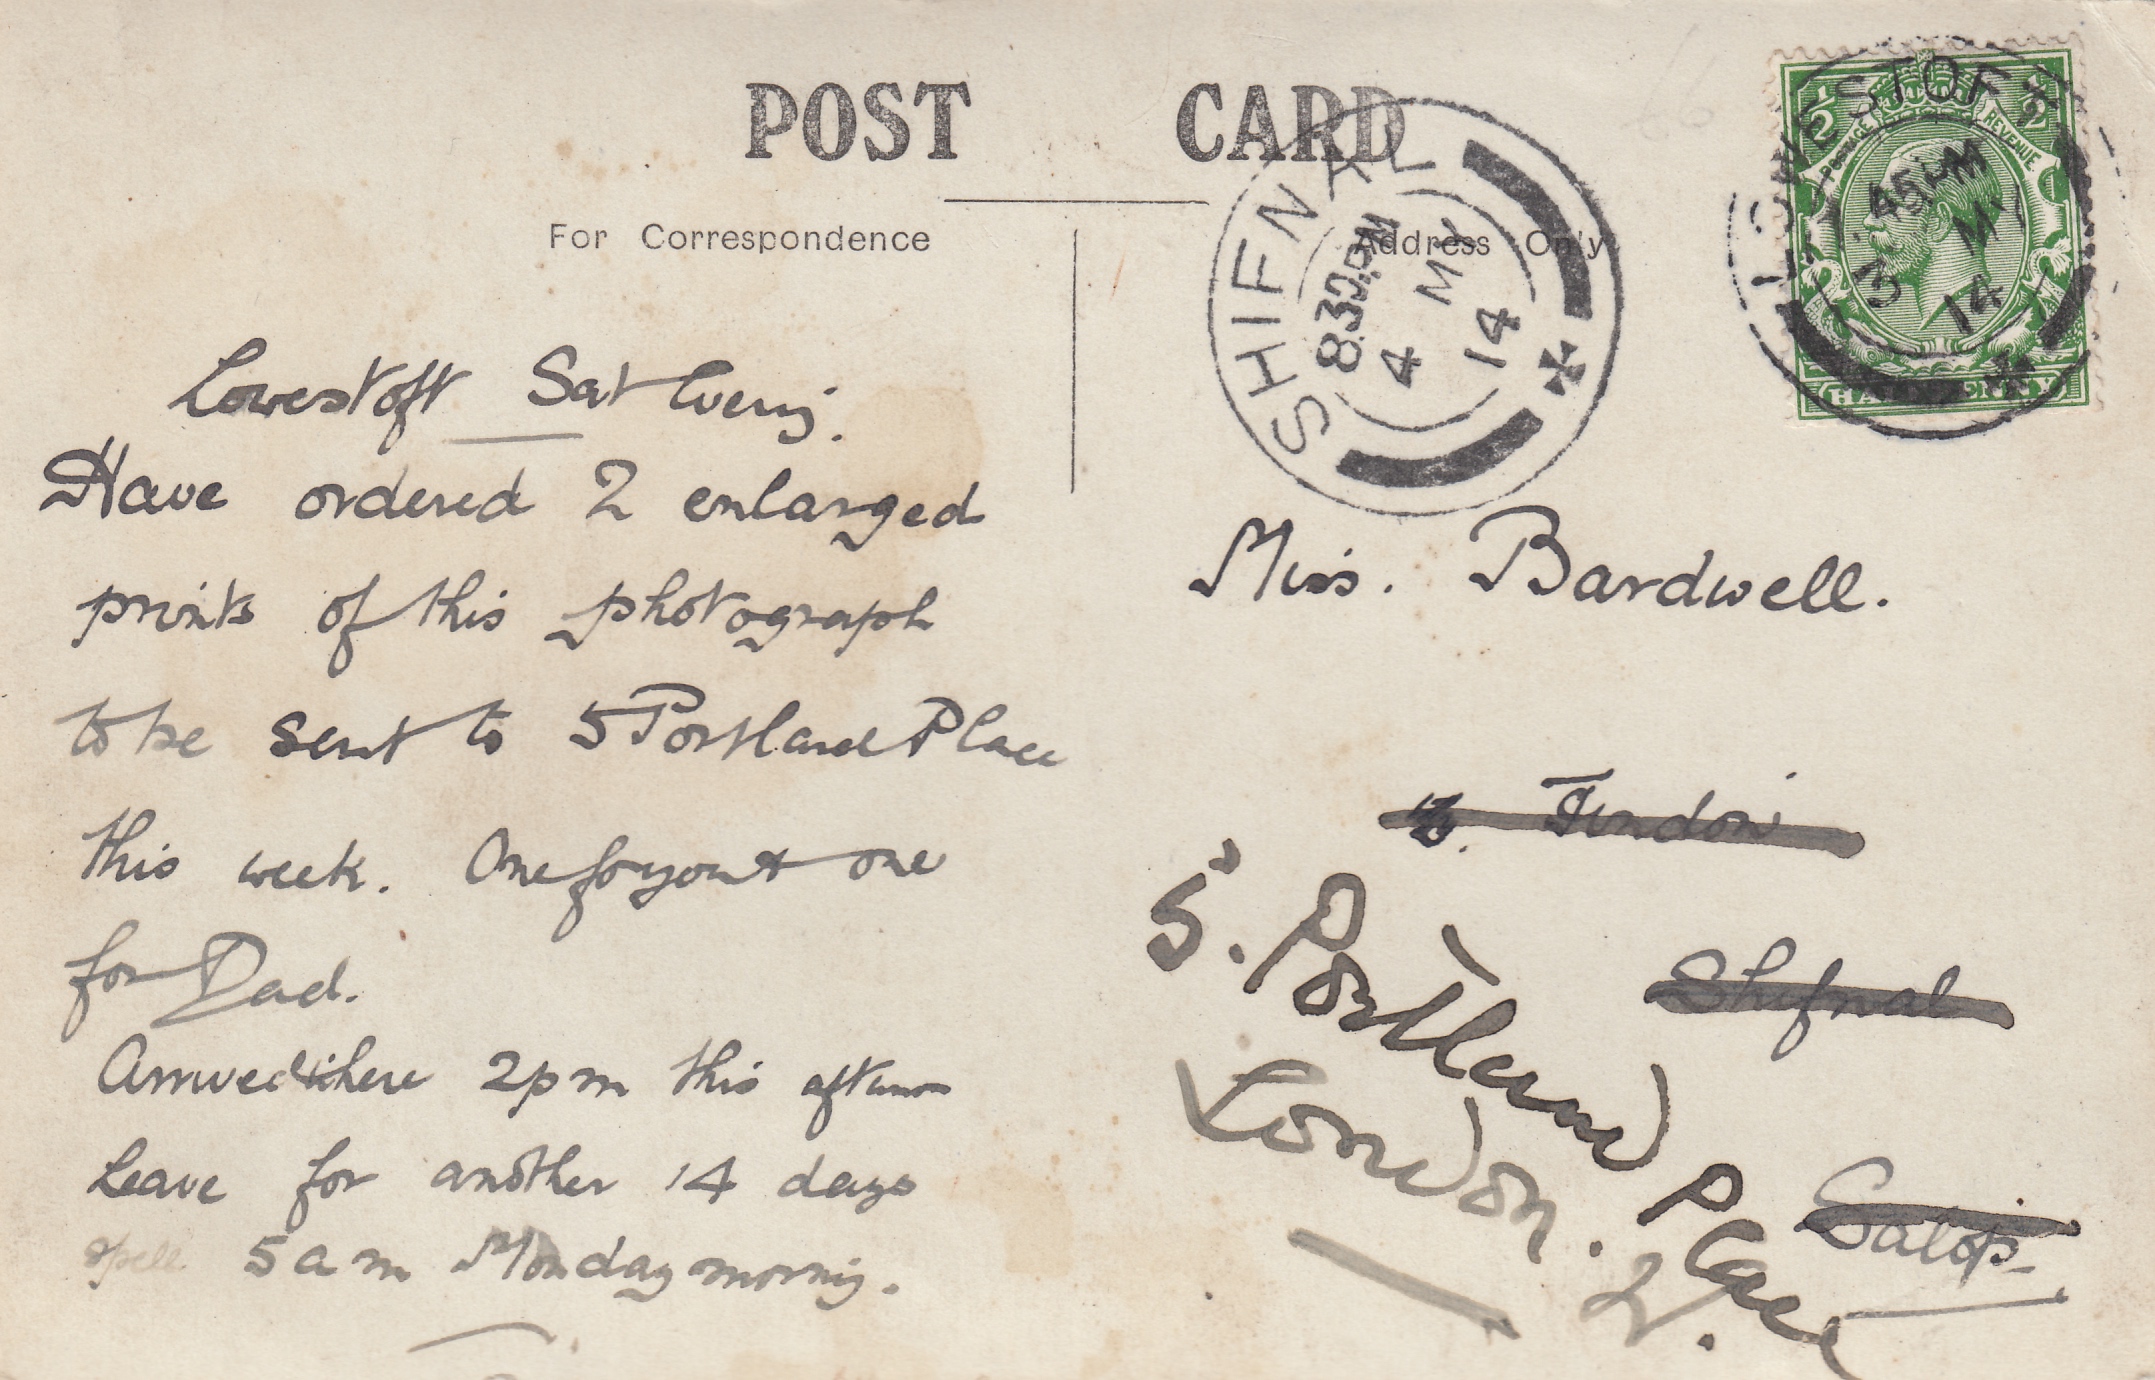 POST CARD
For Correspondence
Address Only
SHIFNAL
8.30PM
4 MY
14
LOWESTOFT
45PM
3 MY
14
½ ½
POSTAGE REVENUE
HALFPENNY
Lowestoft Sat Evenig.
Have ordered 2 enlarged
prints of this photograph
to be sent to 5 Portland Place
this week. One for you & one
for Dad.
Arrived here 2pm this afternoon
Leave for another 14 days
spell 5am Monday mornig.
Miss. Bardwell.
Shifnal
Salop.
5. Portland Place
London.